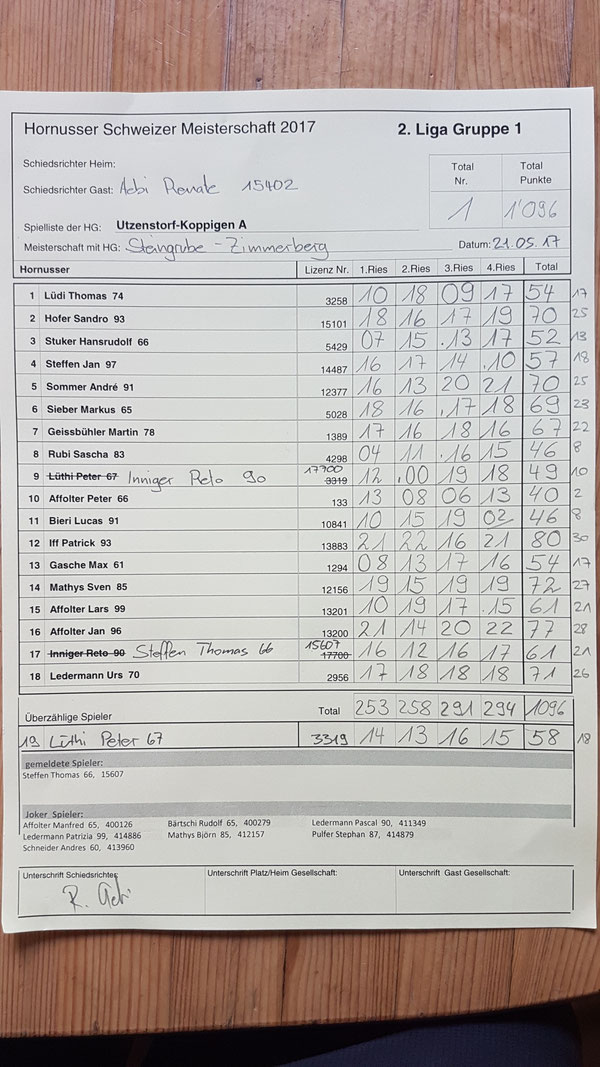 Hornusser Schweizer Meisterschaft 2017 2. Liga Gruppe 1
Schiedsrichter Heim:
Total Nr. Total Punkte
Schiedsrichter Gast: Aebi Renate 15402
1 1'096
Spielliste der HG: Utzenstorf-Koppigen A
Meisterschaft mit HG: Steingrube - Zimmerberg Datum: 21.05.17
Hornusser Lizenz Nr. 1.Ries 2.Ries 3.Ries 4.Ries Total
1 Lüdi Thomas 74 3258 10 18 09 17 54 17
2 Hofer Sandro 93 15101 18 16 17 19 70 25
3 Stuker Hansrudolf 66 5429 07 15 .13 17 52 13
4 Steffen Jan 97 14487 16 17 14 .10 57 18
5 Sommer André 91 12377 16 13 20 21 70 25
6 Sieber Markus 65 5028 18 16 .17 18 69 23
7 Geissbühler Martin 78 1389 17 16 18 16 67 22
8 Rubi Sascha 83 4298 04 11 .16 15 46 8
9 Lüthi Peter 67 Inniger Reto 90 17700 3319 12 .00 19 18 49 10
10 Affolter Peter 66 133 13 08 06 13 40 2
11 Bieri Lucas 91 10841 10 15 19 02 46 8
12 Iff Patrick 93 13883 21 22 16 21 80 30
13 Gasche Max 61 1294 08 13 17 16 54 17
14 Mathys Sven 85 12156 19 15 19 19 72 27
15 Affolter Lars 99 13201 10 19 17 .15 61 21
16 Affolter Jan 96 13200 21 14 20 22 77 28
17 Inniger Reto 90 Steffen Thomas 66 15607 17700 16 12 16 17 61 21
18 Ledermann Urs 70 2956 17 18 18 18 71 26
Überzählige Spieler Total 253 258 291 294 1096
19 Lüthi Peter 67 3319 14 13 16 15 58 18
gemeldete Spieler:
Steffen Thomas 66, 15607
Joker Spieler:
Affolter Manfred 65, 400126 Bärtschi Rudolf 65, 400279 Ledermann Pascal 90, 411349
Ledermann Patrizia 99, 414886 Mathys Björn 85, 412157 Pulfer Stephan 87, 414879
Schneider Andres 60, 413960
Unterschrift Schiedsrichter Unterschrift Platz/Heim Gesellschaft: Unterschrift Gast Gesellschaft:
R. Aebi